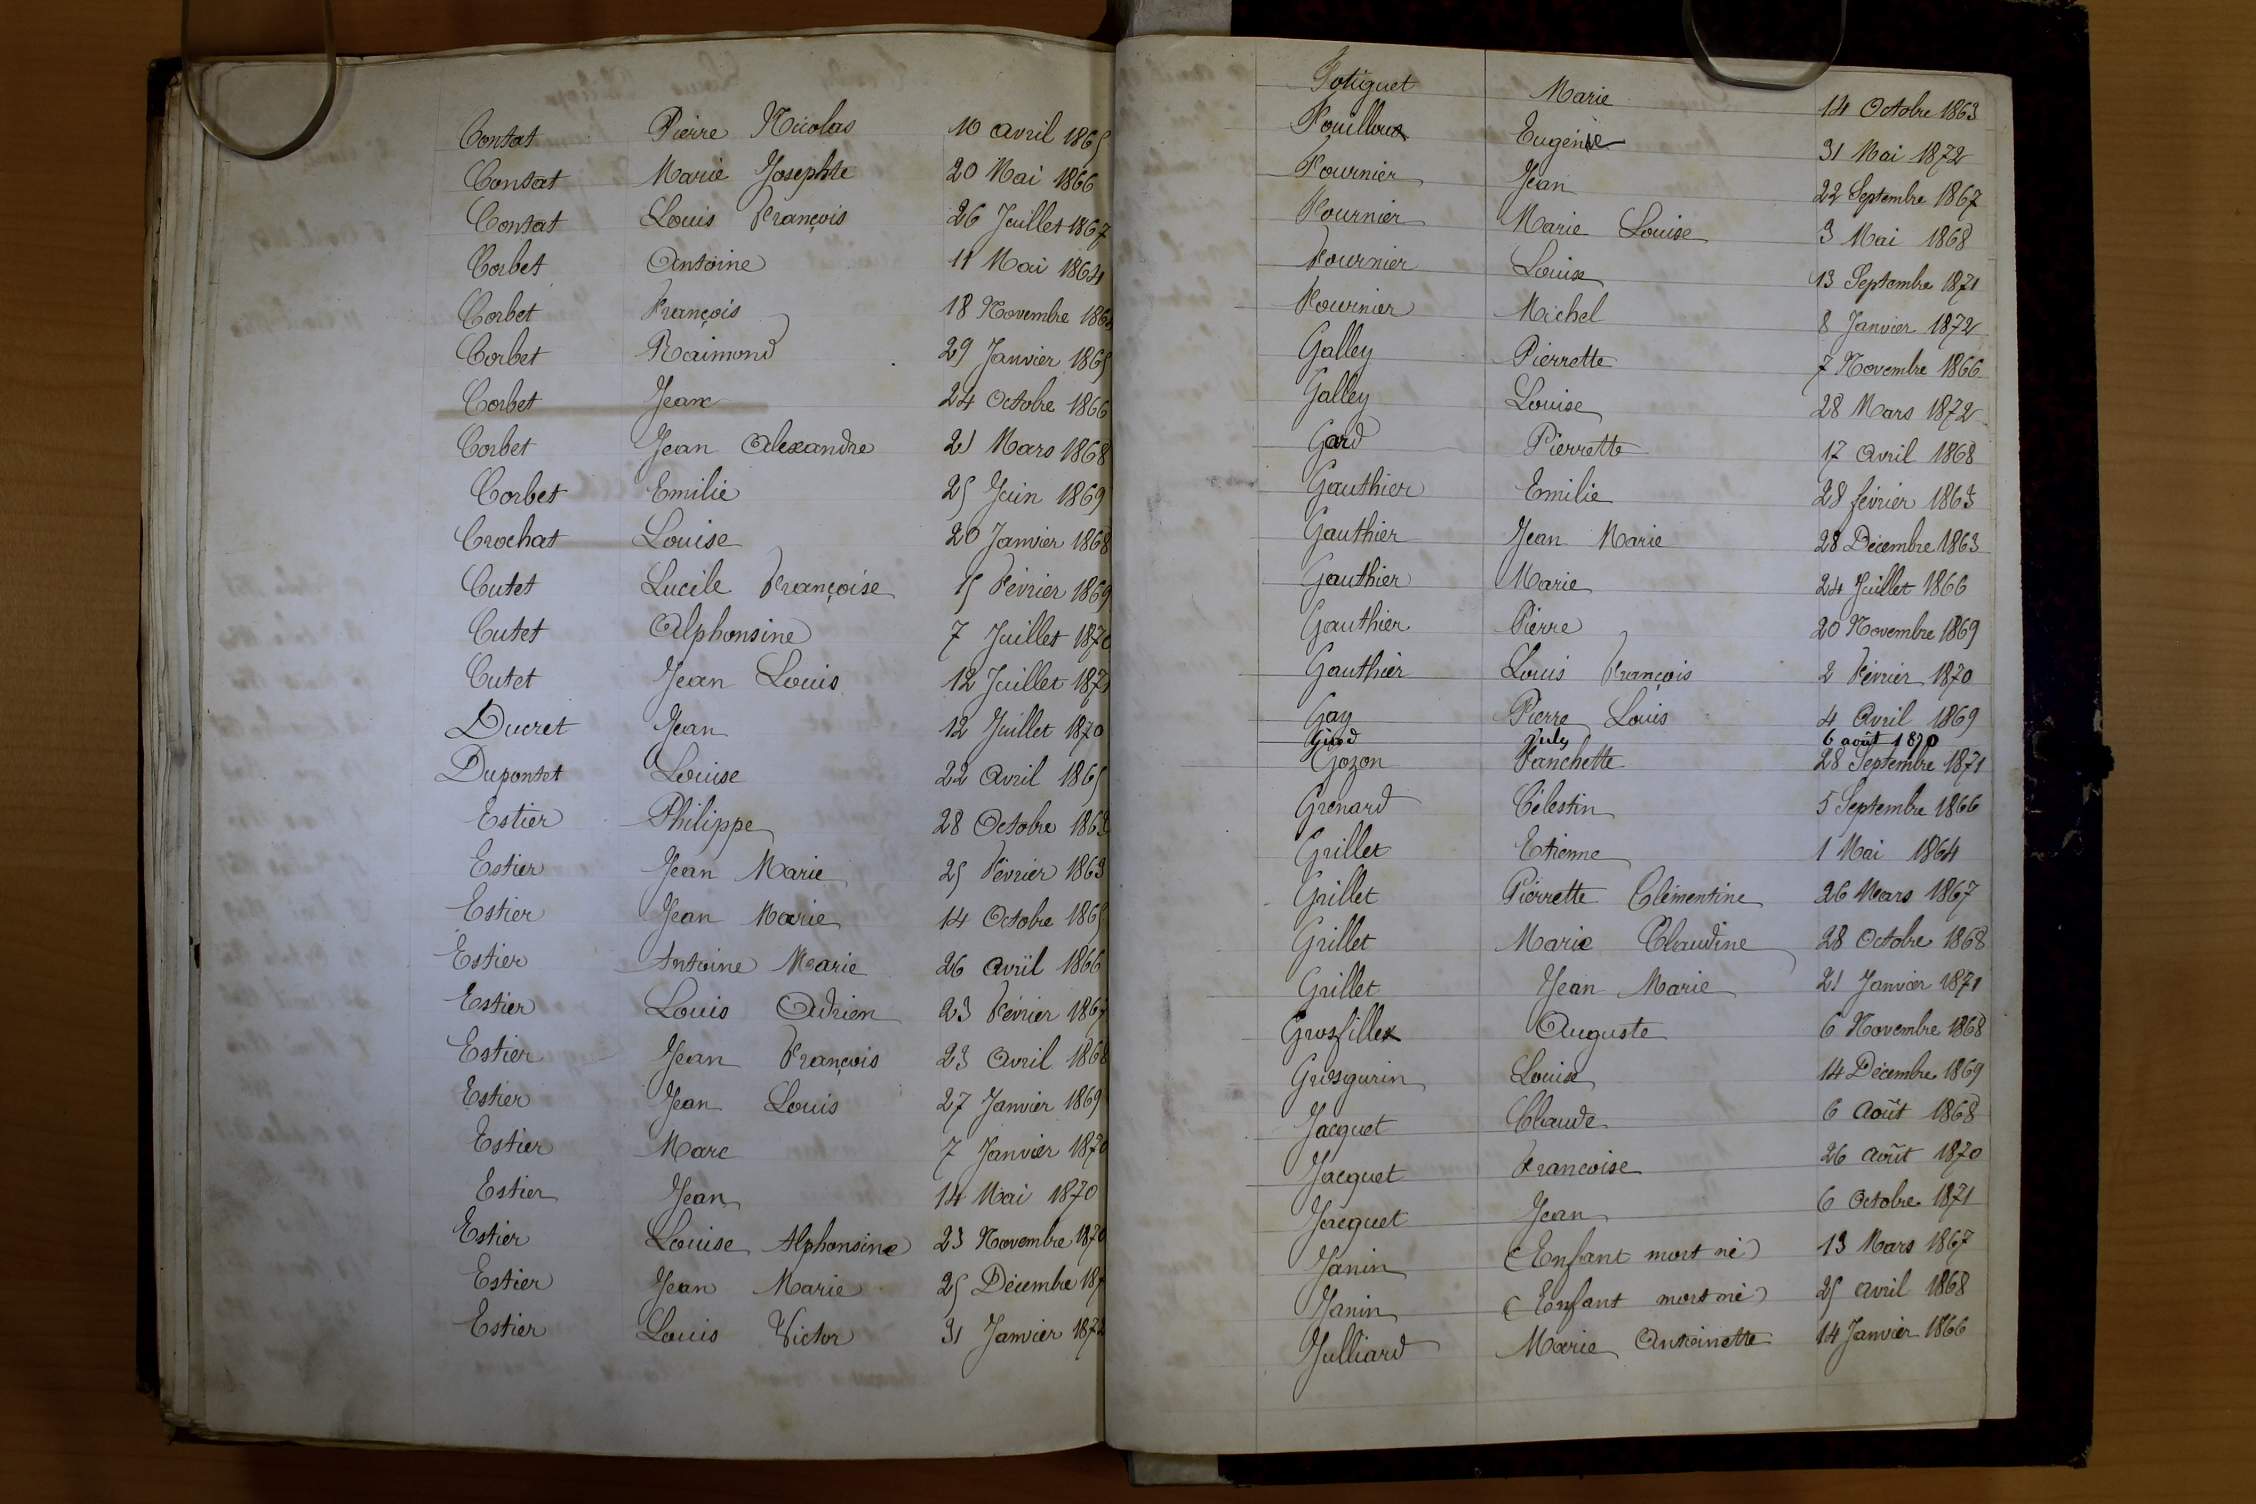 Contat Pierre Nicolas 10 avril 1865
Contat Marie Josephte 20 Mai 1866
Contat Louis François 26 Juillet 1867
Corbet Antoine 11 Mai 1864
Corbet François 18 Novembre
Corbet Raimond 29 Janvier 1865
Corbet Jean 24 Octobre 1866
Corbet Jean Alexandre 21 Mars 1868
Corbet Emilie 25 Juin 1869
Crochat Louise 20 Janvier 1868
Cutet Lucile Françoise 15 Février 1869
Cutet Alphonsine 7 Juillet 1870
Cutet Jean Louis 12 Juillet
Ducret Jean 12 Juillet 1870
Dupontet Louise 22 avril 1865
Estier Philippe 28 Octobre 1863
Estier Jean Marie 25 Février 1863
Estier Jean Marie 14 Octobre 1865
Estier Antoine Marie 26 avril 1866
Estier Louis Adrien 23 Février 1867
Estier Jean François 23 avril 1868
Estier Jean Louis 27 Janvier 1869
Estier Marc 7 Janvier 1870
Estier Jean 14 Mai 1870
Estier Louise Alphonsine 23 Novembre 1870
Estier Jean Marie 25 Décembre
Estier Louis Victor 31 Janvier 1872
Fotiguet Marie 14 Octobre 1863
Fouilloux Eugénie 31 Mai 1872
Fournier Jean 22 Septembre 1867
Fournier Marie Louise 3 Mai 1868
Fournier Louise 13 Septembre 1871
Fournier Michel 8 Janvier 1872
Galley Pierrette 7 Novembre 1866
Galley Louise 28 Mars 1872
Gard Pierrette 17 avril 1868
Gauthier Emilie 28 février 1863
Gauthier Jean Marie 28 Décembre 1863
Gauthier Marie 24 Juillet 1866
Gauthier Pierre 20 Novembre 1869
Gauthier Louis François 2 Février 1870
Gay Pierre Louis 4 avril 1869
Girod July 6 août 1870
Gozon Fanchette 28 Septembre 1871
Grenard Célestin 5 Septembre 1866
Grillet Etienne 1 Mai 1864
Grillet Pierrette Clémentine 26 Mars 1867
Grillet Marie Claudine 28 Octobre 1868
Grillet Jean Marie 21 Janvier 1871
Grosfillex Auguste 6 Novembre 1868
Grosgurin Louise 14 Décembre 1869
Jacquet Claude 6 août 1868
Jacquet Francoise 26 août 1870
Jacquet Jean 6 Octobre 1871
Janin (Enfant mort né) 13 Mars 1867
Janin (Enfant mort né) 25 avril 1868
Julliard Marie Antoinette 14 Janvier 1866